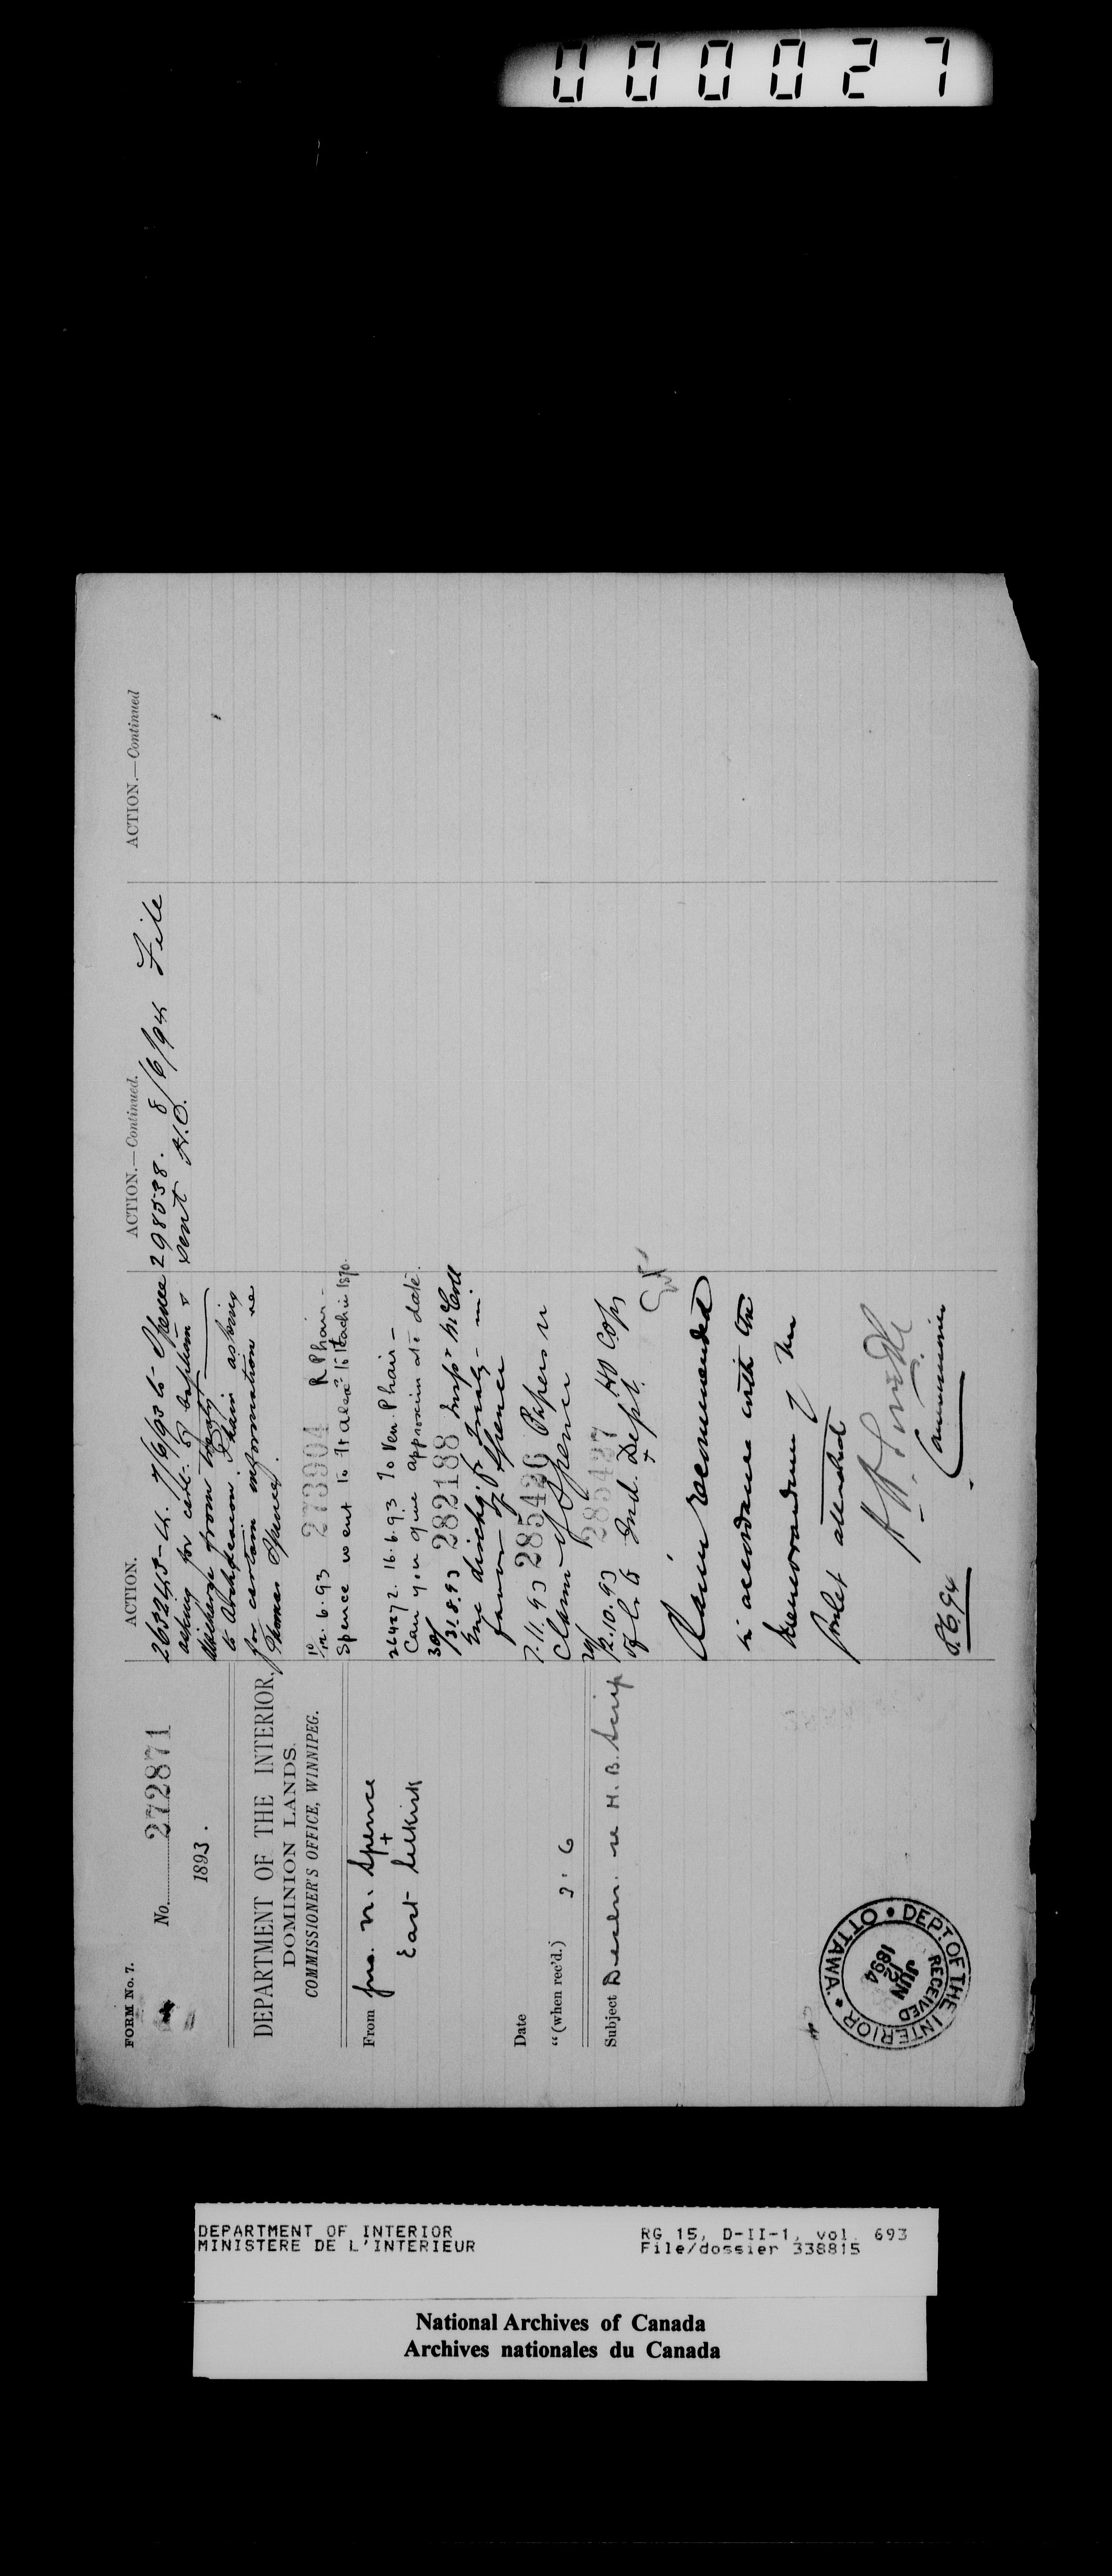 000027
FORM No. 7.
No. 272871
1893.
DEPARTMENT OF THE INTERIOR,
DOMINION LANDS.
COMMISSIONER'S OFFICE, WINNIPEG.
From Jno. N. Spence
East Selkirk
Date
" (when rec'd.) 3 : 6
Subject Decln. re H. B. Scrip
DEPT. OF THE INTERIOR • OTTAWA •
RECEIVED
JUN
12
1894
ACTION.
263245-Ch. 7/6/93 to Spence
asking for cert. of baptism &
discharge from treaty
to Archdeacon Phair asking
for certain information re
Thomas Spence.
10/12.6.93 273904 R Phair—
Spence went to 1870.
26427 2. 16.6.93 To Ven. Phair—
Can you give approximate date.
30/31.8.93 282188 Insp^r McColl
Enc dischg. fr Treaty in
favor of Spence
7.11.93 285426 Papers re
Claim of Spence
12.10.93 285427 HO Copy
of L. to Ind. Dept.
Claim recommended
in accordance with the
memorandum of
attached
Commissioner
8.6.94
ACTION.—Continued.
298538. 8/6/94 File
sent H.O.
ACTION.—Continued
DEPARTMENT OF INTERIOR
MINISTERE DE L'INTERIEUR
RG 15, D-II-1, vol. 693
File/dossier 338815
National Archives of Canada
Archives nationales du Canada